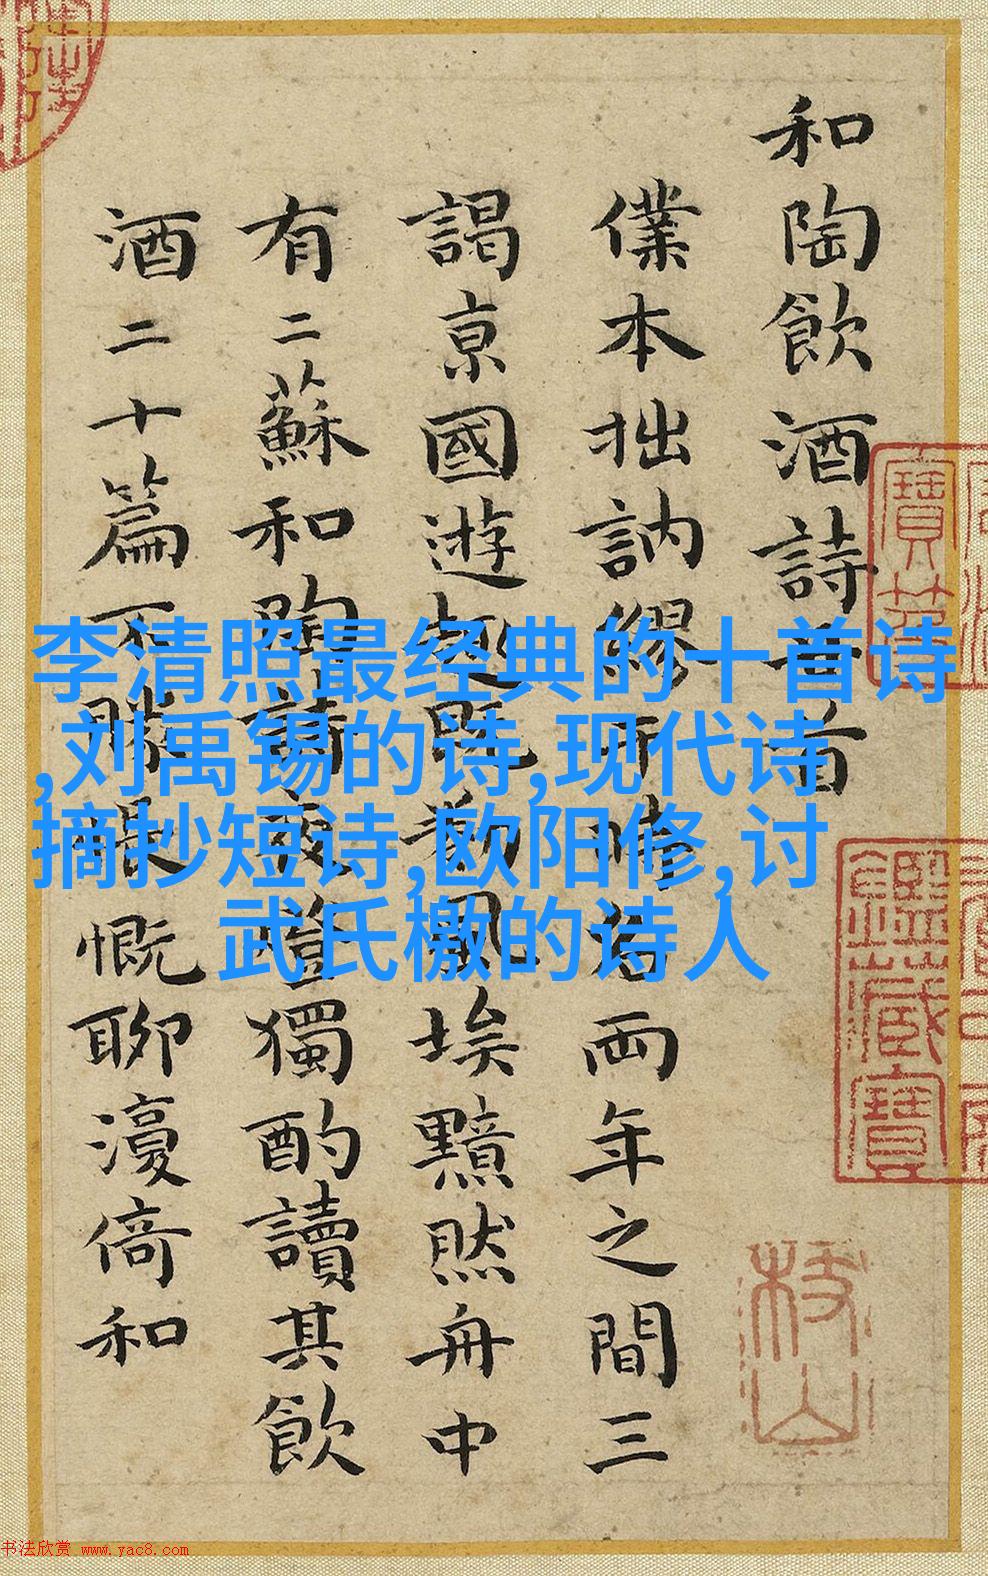 和陶飲酒詩首
僕本拙訥繆兩年之間三
謁亰國遊既風埃黯然舟中
有二蘇和陶詩獨酌讀其飲
酒二十篇不勝慨聊倚和
李清照最经典的十首诗
,刘禹锡的诗,现代诗
摘抄短诗,欧阳修,讨
武氏檄的诗人
枝山
书法欣赏 www.yac8.com